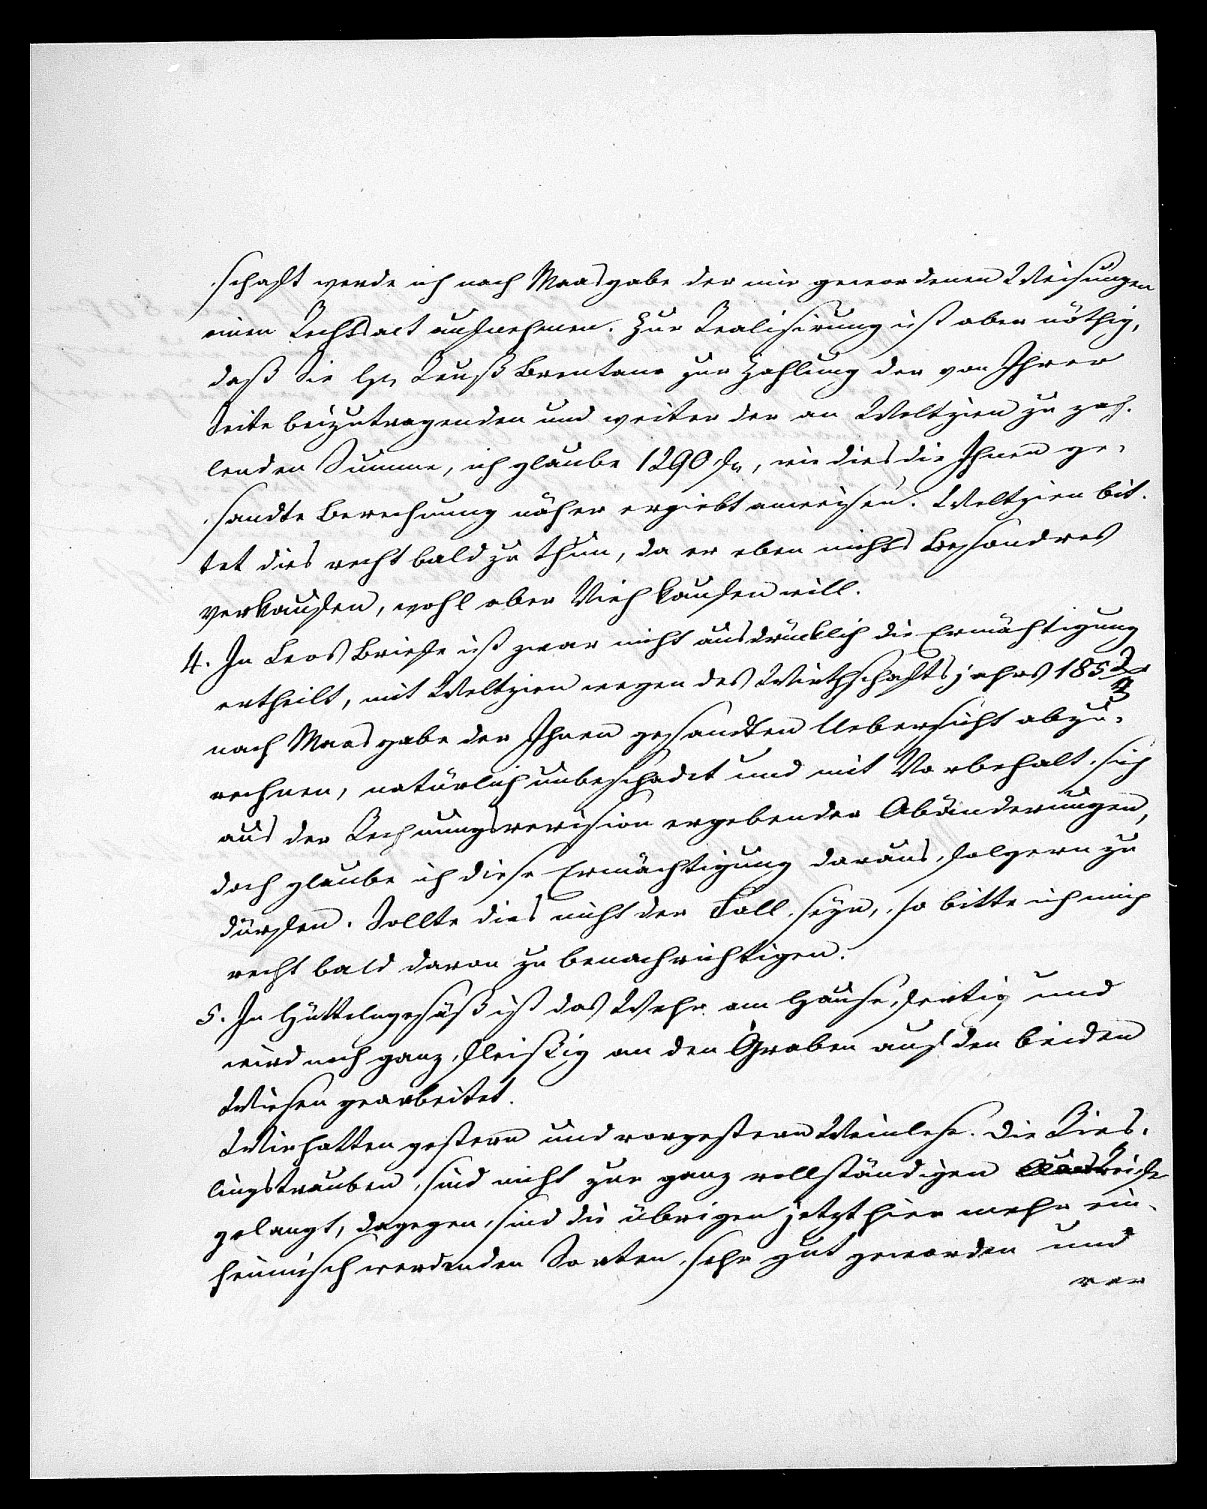 schaft werde ich nach Maasgabe der mir gewordenen Weisungen
einen Rechtsact aufnehmen. Zur Realisirung ist aber nöthig,
daß Sie Hn Reuß Brentano zur Zahlung der von Ihrer
Seite beizutragenden und weiter der an Weltzien zu zah-
lenden Summe, ich glaube 1290 fl, wie dies die Ihnen ge-
sandte Berechnung näher ergiebt anweisen. Weltzien bit-
tet dies recht bald zu thun, da er eben nichts Besondres
verkaufen, wohl aber Vieh kaufen will.
4. In Leos Briefe ist zwar nicht ausdrücklich die Ermächtigung
ertheilt, mit Weltzien wegen des Wirthschaftsjahrs 1852/3
nach Maasgabe der Ihnen gesandten Uebersicht abzu-
rechnen, natürlich unbeschadet und mit Vorbehalt sich
aus der Rechnungsrevision ergebender Abänderungen,
doch glaube ich diese Ermächtigung daraus folgern zu
dürfen. Sollte dies nicht der Fall seyn, so bitte ich mich
recht bald davon zu benachrichtigen.
5. In Hüttelngesäß ist das Wehr am Hause fertig und
wird noch ganz fleißig an den Graben auf den beiden
Wiesen gearbeitet.
Wir hatten gestern und vorgestern Weinlese. Die Ries-
lingstrauben sind nicht zur ganz vollständigen Reife
gelangt, dagegen sind die übrigen jetzt hier mehr ein-
heimisch werdenden Sorten sehr gut geworden und
ver